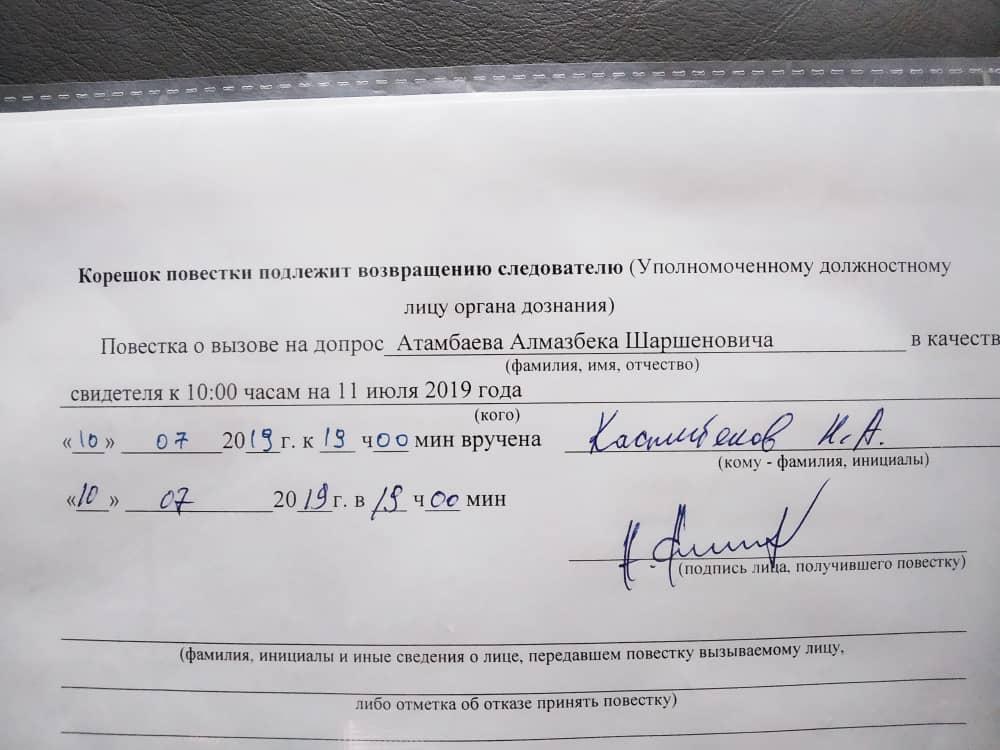 Корешок повестки подлежит возвращению следователю (Уполномоченному должностному
лицу органа дознания)
Повестка о вызове на допрос Атамбаева Алмазбека Шаршеновича в качеств
(фамилия, имя, отчество)
свидетеля к 10:00 часам на 11 июля 2019 года
(кого)
«10» 07 2019 г. к 19 ч 00 мин вручена Н.А.
(кому - фамилия, инициалы)
«10» 07 2019 г. в 19 ч 00 мин
(подпись лица, получившего повестку)
(фамилия, инициалы и иные сведения о лице, передавшем повестку вызываемому лицу,
либо отметка об отказе принять повестку)